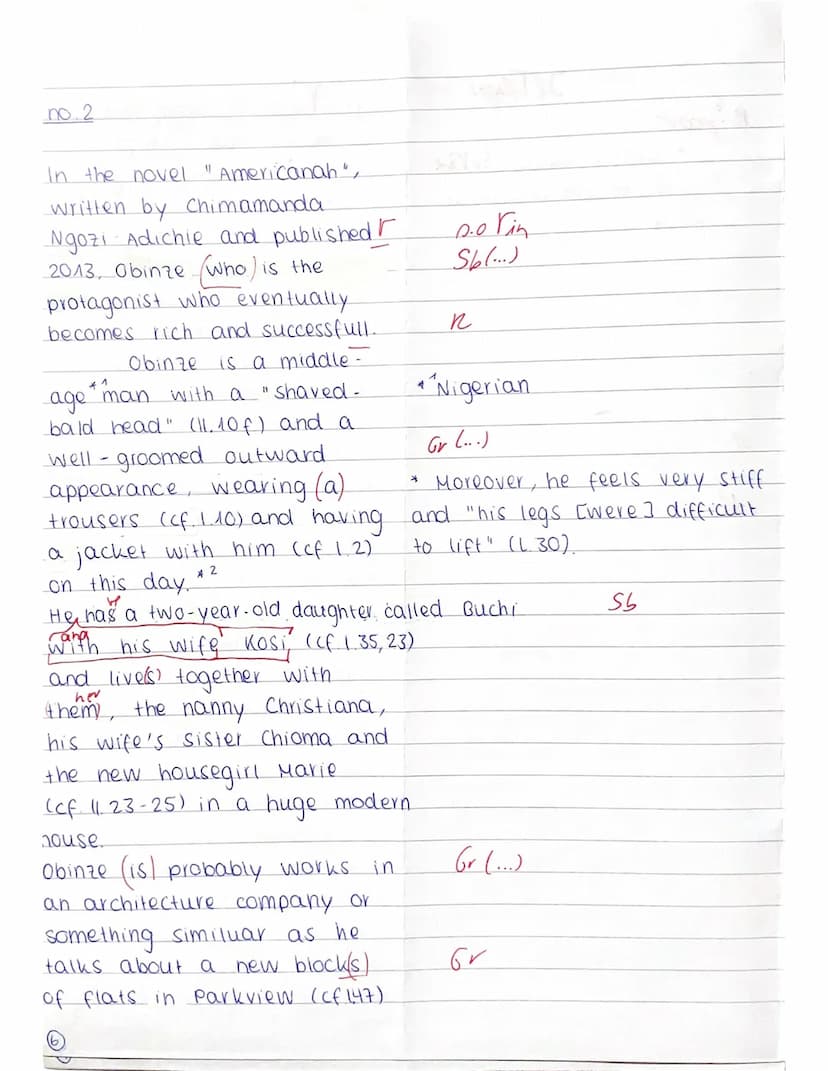 no. 2
In the novel "Americanah",
written by Chimamanda
Ngozi Adichie and published Γ
o.o Γin
2013, Obinze (who) is the
Sb (...)
protagonist who eventually
becomes rich and successfull.
R
Obinze is a middle-
age *¹ man with a "shaved-
*¹ Nigerian
bald head" (ll. 10f) and a
well-groomed outward
Gr (...)
appearance, wearing (a)
trousers (cf. l. 10) and having
a jacket with him (cf l. 2)
on this day. *²
* Moreover, he feels very stiff
and "his legs [were] difficult
to lift" (l. 30).
He has a two-year-old daughter called Buchi
Sb
and
with his wife Kosi, (cf l. 35, 23)
and live(s) together with
her
them), the nanny Christiana,
his wife's sister Chioma and
the new housegirl Marie
(cf. ll. 23-25) in a huge modern
house.
Obinze (is) probably works in
Gr (...)
an architecture company or
something similuar as he
talks about a new block(s)
Gr
of flats in Parkview (cf l.47)
6